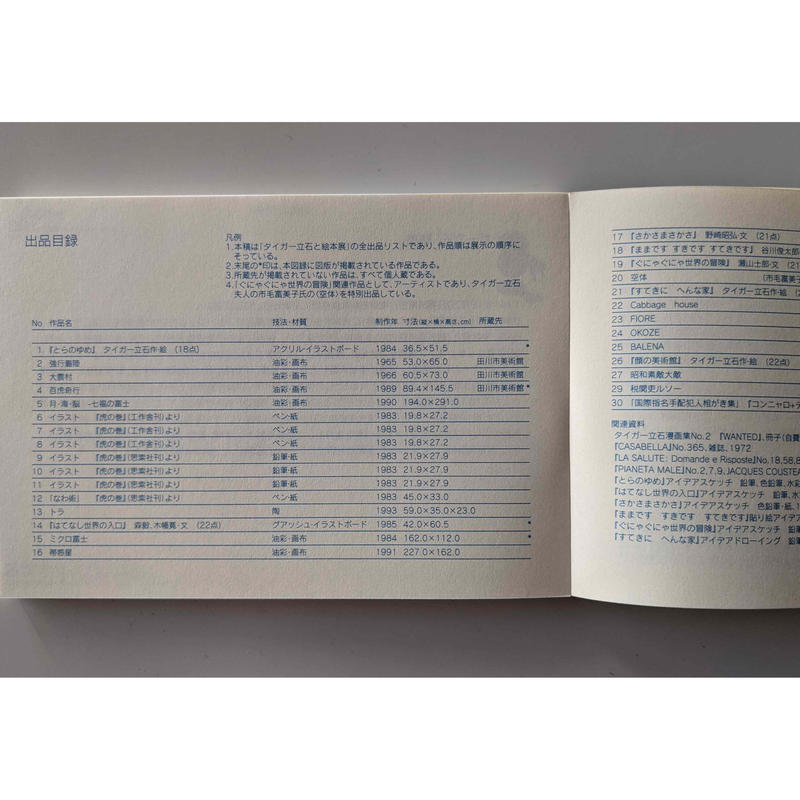 出品目録
凡例
1.本稿は「タイガー立石と絵本展」の全出品リストであり、作品順は展示の順序に
そっている。
2.末尾の*印は、本図録に図版が掲載されている作品である。
3.所蔵先が掲載されていない作品は、すべて個人蔵である。
4.「ぐにゃぐにゃ世界の冒険」関連作品として、アーティストであり、タイガー立石
夫人の市毛富美子氏の〈空体〉を特別出品している。
No 作品名 技法・材質 制作年 寸法(縦×横×高さ、cm) 所蔵先
1. 『とらのゆめ』 タイガー立石作・絵 (18点) アクリル・イラストボード 1984 36.5×51.5 *
2 強行着陸 油彩・画布 1965 53.0×65.0 田川市美術館
3 大雲村 油彩・画布 1966 60.5×73.0 田川市美術館
4 百虎奇行 油彩・画布 1989 89.4×145.5 田川市美術館 *
5 月・海・脳 -七福の富士 油彩・画布 1990 194.0×291.0
6 イラスト 『虎の巻』(工作舎刊)より ペン・紙 1983 19.8×27.2
7 イラスト 『虎の巻』(工作舎刊)より ペン・紙 1983 19.8×27.2
8 イラスト 『虎の巻』(工作舎刊)より ペン・紙 1983 19.8×27.2
9 イラスト 『虎の巻』(思索社刊)より 鉛筆・紙 1983 21.9×27.9
10 イラスト 『虎の巻』(思索社刊)より 鉛筆・紙 1983 21.9×27.9
11 イラスト 『虎の巻』(思索社刊)より 鉛筆・紙 1983 21.9×27.9
12 「なわ術」 『虎の巻』(思索社刊)より ペン・紙 1983 45.0×33.0
13 トラ 陶 1993 59.0×35.0×23.0
14 『はてなし世界の入口』 森毅、木幡寛・文 (22点) グアッシュ・イラストボード 1985 42.0×60.5 *
15 ミクロ富士 油彩・画布 1984 162.0×112.0 *
16 帯惑星 油彩・画布 1991 227.0×162.0
17 『さかさまさかさ』 野崎昭弘・文 (21点)
18 『ままです すきです すてきです』 谷川俊太郎
19 『ぐにゃぐにゃ世界の冒険』 瀬山士郎・文 (21
20 空体 (市毛富美子
21 『すてきに へんな家』 タイガー立石作・絵
22 Cabbage house
23 FIORE
24 OKOZE
25 BALENA
26 『顔の美術館』 タイガー立石作・絵 (22点)
27 昭和素敵大敵
29 税関吏ルソー
30 「国際指名手配犯人相がき集」 『コンニャロ+
関連資料
タイガー立石漫画集No.2 『WANTED』、冊子(自費
『CASABELLA』No.365、雑誌、1972
『LA SALUTE: Domande e Risposte』No.18,58,8
『PIANETA MALE』No.2,7,9、JACQUES COUSTEA
『とらのゆめ』アイデアスケッチ 鉛筆、色鉛筆、水彩
『はてなし世界の入口』アイデアスケッチ 鉛筆、水
『さかさまさかさ』アイデアスケッチ 色鉛筆・紙、1
『ままです すきです すてきです』貼り絵アイデ
『ぐにゃぐにゃ世界の冒険』アイデアスケッチ 鉛筆
『すてきに へんな家』アイデアドローイング 鉛筆